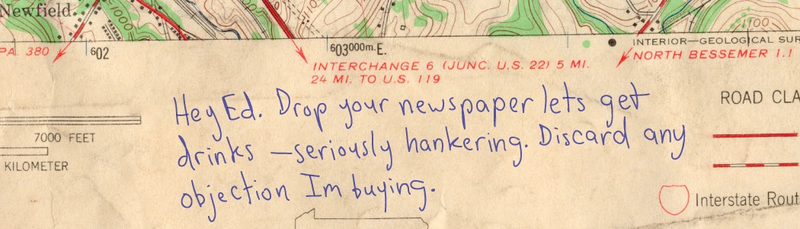 Newfield.
1000
1100
PA. 380
602
603000m.E.
INTERIOR—GEOLOGICAL SUR
INTERCHANGE 6 (JUNC. U.S. 22) 5 MI.
NORTH BESSEMER 1.1
24 MI. TO U.S. 119
Hey Ed. Drop your newspaper lets get
drinks —seriously hankering. Discard any
objection Im buying.
7000 FEET
KILOMETER
ROAD CLA
Interstate Rout